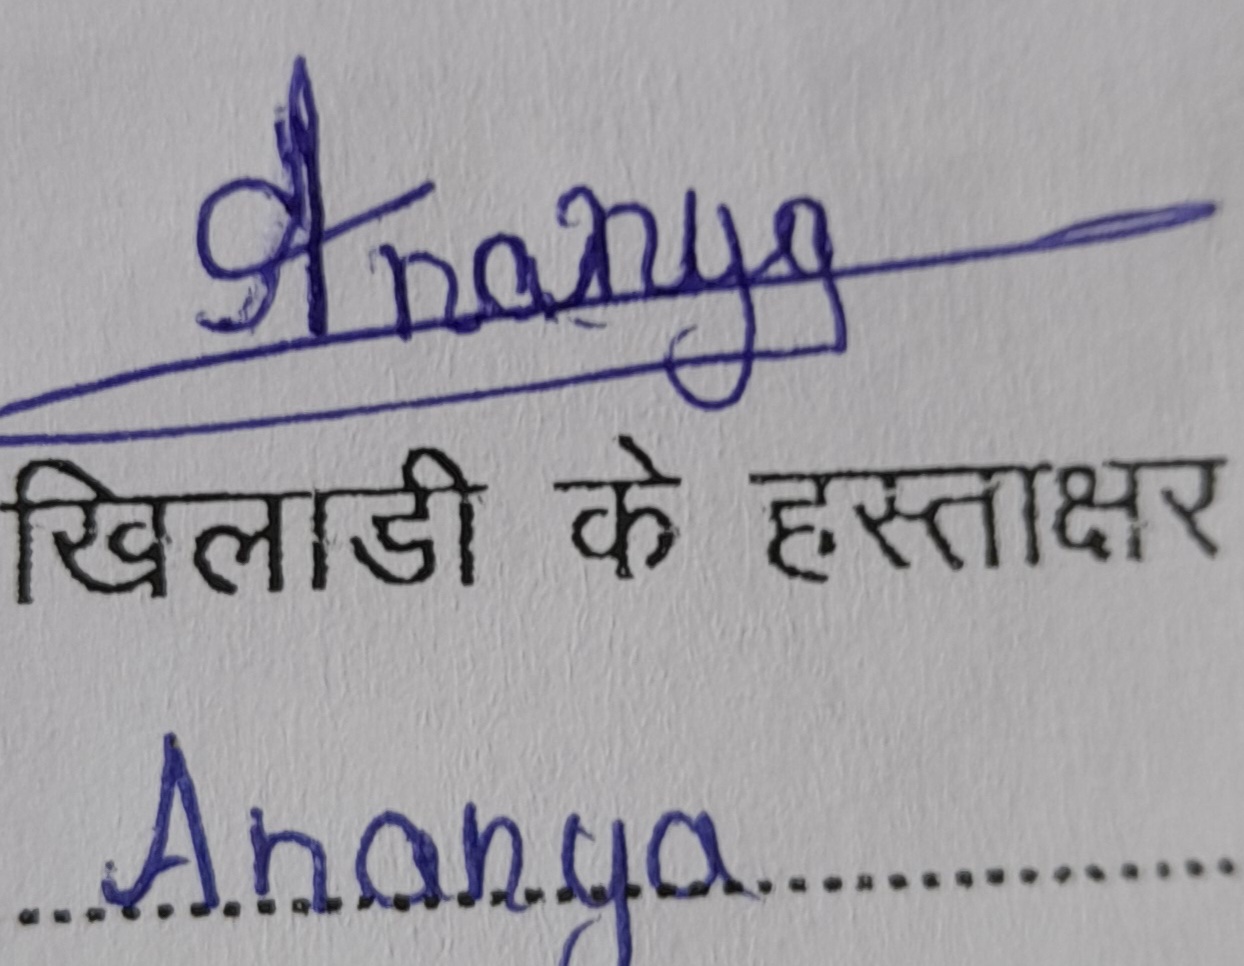 Ananya
खिलाडी के हस्ताक्षर
Ananya